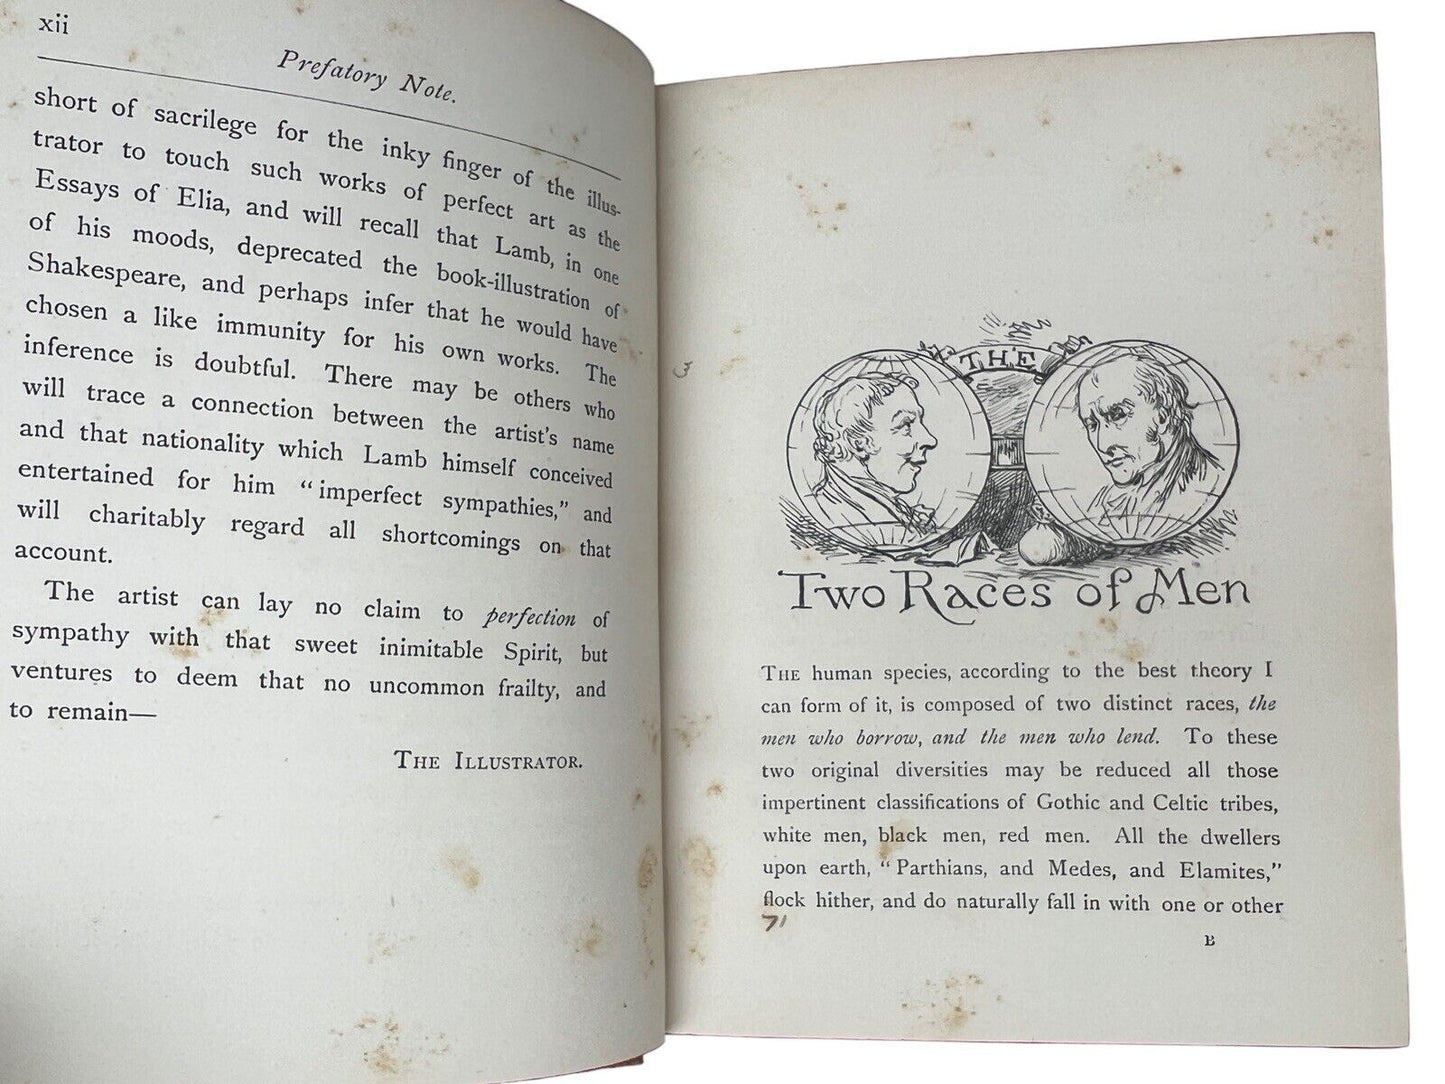 xii
Prefatory Note.
short of sacrilege for the inky finger of the illus-
trator to touch such works of perfect art as the
Essays of Elia, and will recall that Lamb, in one
of his moods, deprecated the book-illustration of
Shakespeare, and perhaps infer that he would have
chosen a like immunity for his own works. The
inference is doubtful. There may be others who
will trace a connection between the artist's name
and that nationality which Lamb himself conceived
entertained for him "imperfect sympathies," and
will charitably regard all shortcomings on that
account.
The artist can lay no claim to perfection of
sympathy with that sweet inimitable Spirit, but
ventures to deem that no uncommon frailty, and
to remain—
THE ILLUSTRATOR.
3
THE
Two Races of Men
THE human species, according to the best theory I
can form of it, is composed of two distinct races, the
men who borrow, and the men who lend. To these
two original diversities may be reduced all those
impertinent classifications of Gothic and Celtic tribes,
white men, black men, red men. All the dwellers
upon earth, "Parthians, and Medes, and Elamites,"
flock hither, and do naturally fall in with one or other
71
B